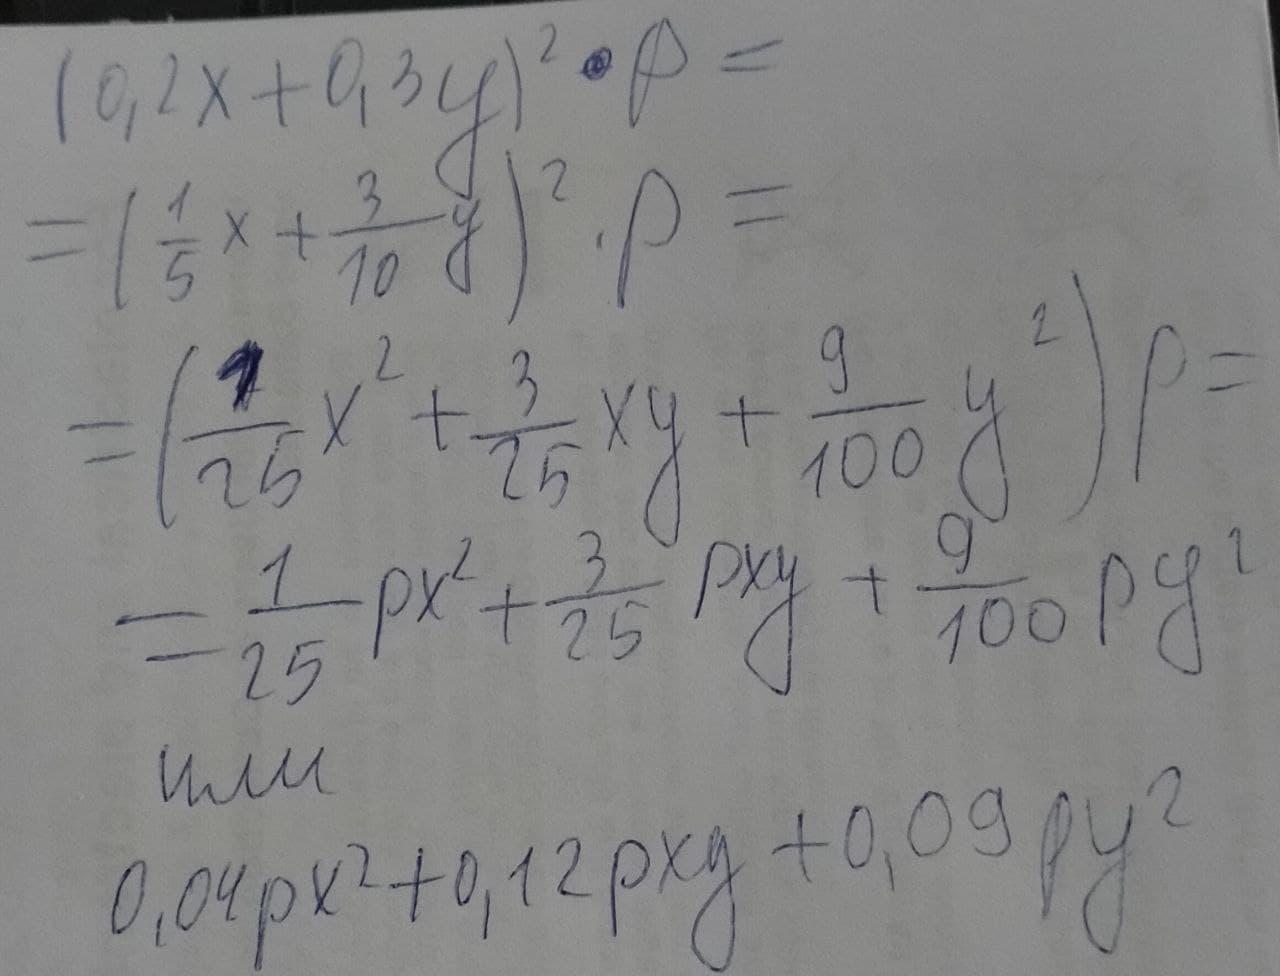 (0,2x+0,3y)²•p=
=(1/5 x+3/10 y)²·p=
=(1/25 x²+3/25 xy+9/100 y²)p=
=1/25 px²+3/25 pxy+9/100 py²
или
0,04px²+0,12pxy+0,09py²